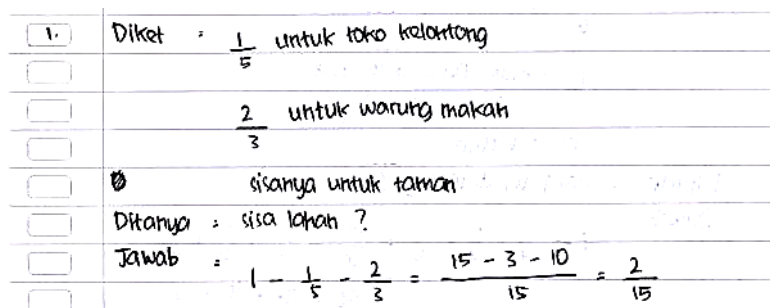 1. Diket : 1/5 untuk toko kelontong
2/3 untuk warung makan
sisanya untuk taman
Ditanya : sisa lahan ?
Jawab : 1 - 1/5 - 2/3 = (15 - 3 - 10)/15 = 2/15